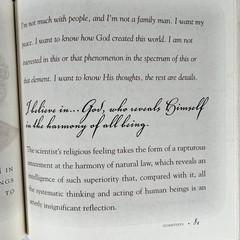 I'm not much with people, and I'm not a family man. I want my
peace. I want to know how God created this world. I am not
interested in this or that phenomenon in the spectrum of this or
that element. I want to know His thoughts, the rest are details.
I believe in... God, who reveals Himself
in the harmony of all being.
The scientist's religious feeling takes the form of a rapturous
amazement at the harmony of natural law, which reveals an
intelligence of such superiority that, compared with it, all
the systematic thinking and acting of human beings is an
utterly insignificant reflection.
IN
NGS
TO
SCIENTISTS • 81